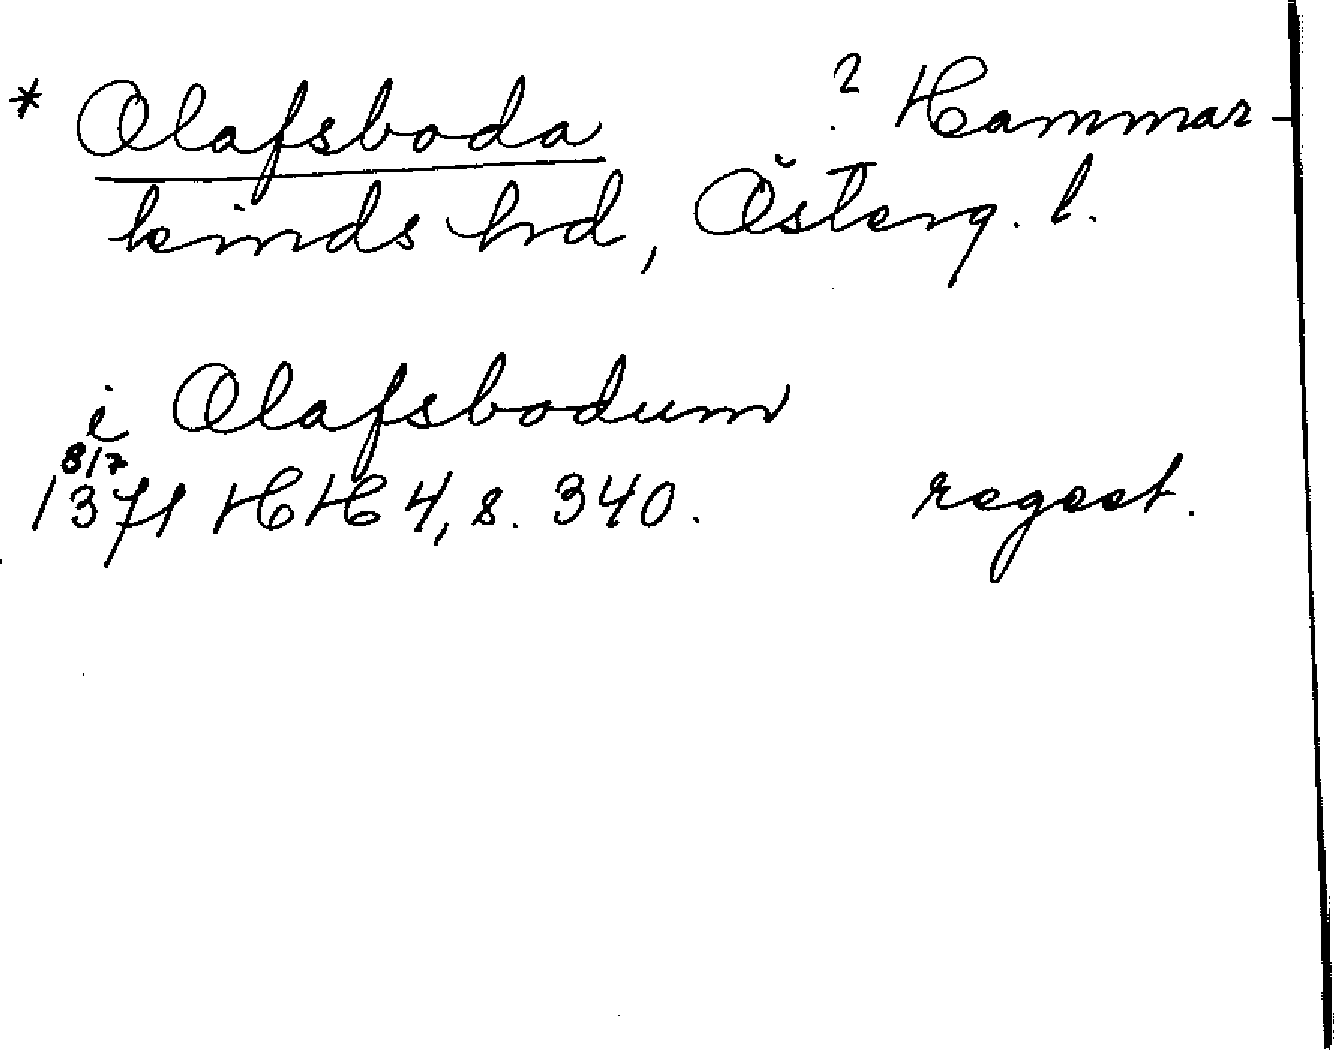 * Olafsboda ? Hammar-
kinds hrd, Österg. l.
i Olafsbodum
8/7
1371 HH 4, s. 340. regest.